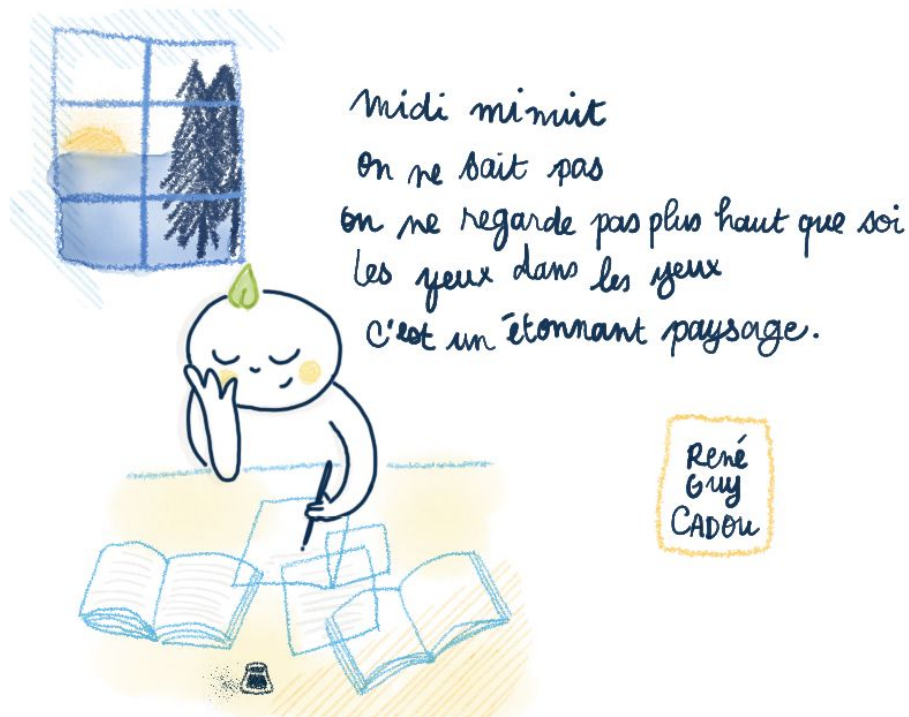 midi minuit
on ne sait pas
on ne regarde pas plus haut que soi
les yeux dans les yeux
c'est un étonnant paysage.
René
Guy
CADOU